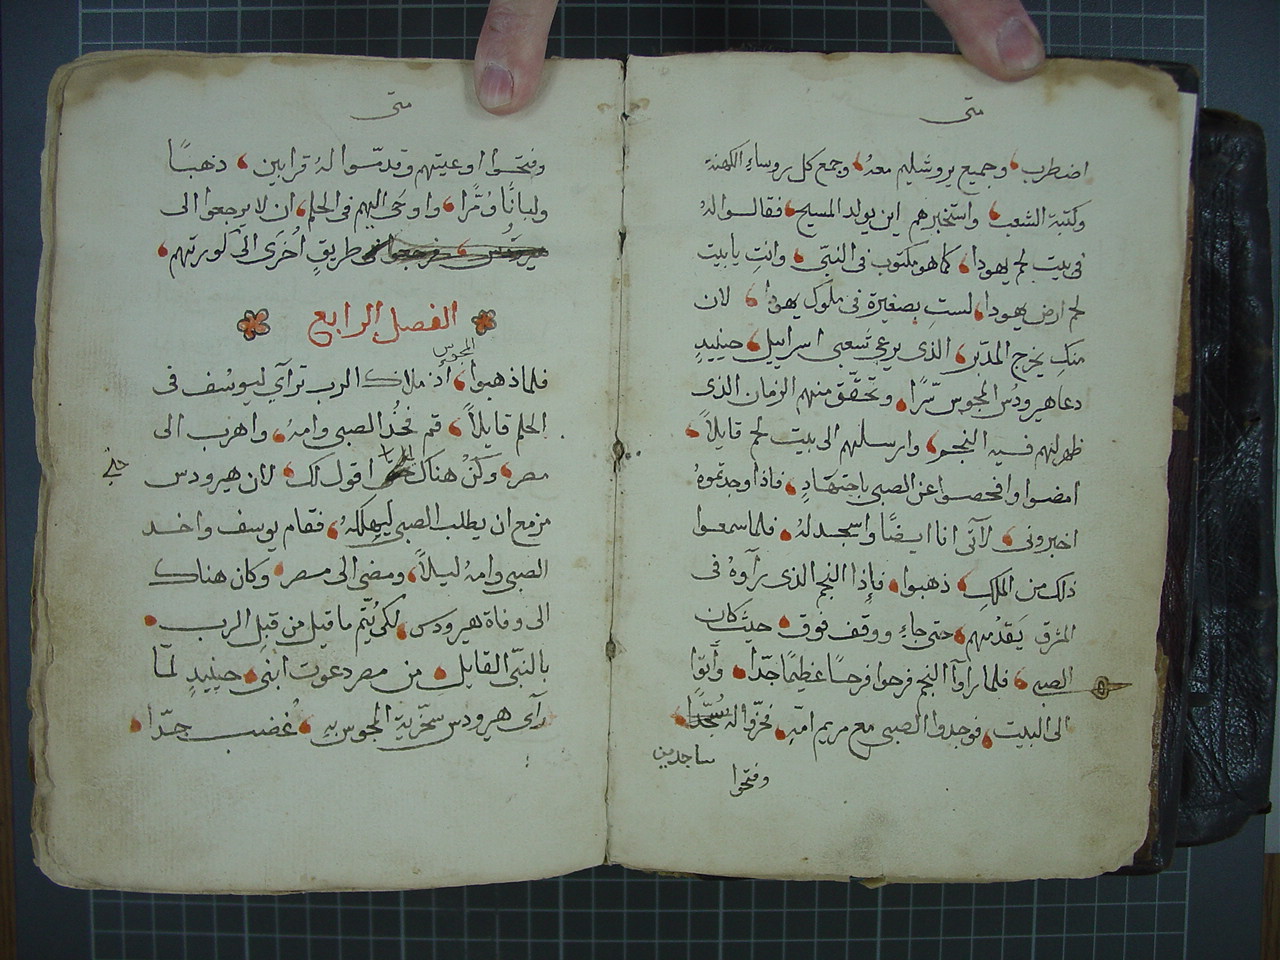 متى
اضطرب، وجميع يروشليم معهُ، وجمع كل روساءِ الكهنة
وكتبة الشعب، واستخبرهم اين يولد المسيح، فقالوا لهُ
فى بيت لحم يهودا، كما هو مكتوب فى النبّى، وانتِ يا بيت
لحم ارض يهودا، لستِ بصغيرة فى ملوك يهودا، لان
منكِ يخرج المدبّر، الذى يرعى شعبى اسراييل، حينيدٍ
دعا هيرودُس المجوس سّرًا، وتحقّق منهم الزمان الذى
ظهر لهم فيه النجم، وارسلهم الى بيت لحم قايلاً،
امضوا وافحصوا عن الصبى باجتهادٍ، فاذا وجدتموهُ
اخبرونى، لآتى انا ايضًا واسجد لهُ، فلما سمعوا
ذلك من الملكِ، ذهبوا، فإذا النجم الذى رآوهُ فى
المشرق يَقدُمهم، حتى جاءِ ووقف فوق، حيث كان
الصبى، فلما راوآ النجم فرحوا فرحًا عظيمًا جدّا، وآتوا
الى البيت، فوجدوا الصبى مع مريم امّهِ، فخرّوا لهُ سُجّدًا،
ساجدين
وفتحوا
متى
وفتحوا اوعيتهم وقدمّوا لهُ قرابين، ذهبًا
ولبانًا ومُرًّا، واوحَى اليهم فى الحلم، ان لا يرجعوا الى
هيرودُس، فرجعوا فى طريقٍ اخرَى الى كورتهم،
الفصل الرابع
المجوس
فلما ذهبوا، اذ ملاك الرب ترآى ليوسُف فى
الحلم قايلاً، قم فخُد الصبى وامهُ، واهرب الى
مصر، وكُنْ هناك اقول لك، لان هيرودس
مزمع ان يطلب الصبى ليهلكهُ، فقام يوسف واخد
الصبى وامهُ ليلاً، ومضى الى مصر، وكان هناك
الى وفاة هيرودس، لكى يُتّم ما قيل من قبل الرب،
بالنبّى القايل، من مصر دعوت ابنى، حينيدٍ لمّا
رآى هيرودس سخرّية المجوس بهِ، غُضب جدّا،